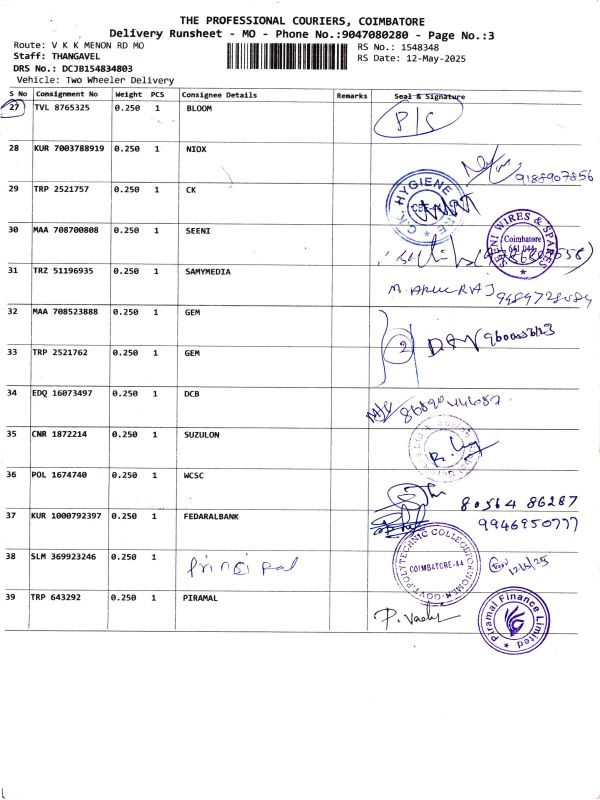 THE PROFESSIONAL COURIERS, COIMBATORE
Delivery Runsheet - MO - Phone No.:9047080280 - Page No.:3
Route: V K K MENON RD MO
RS No.: 1548348
Staff: THANGAVEL
RS Date: 12-May-2025
DRS No.: DCJB154834803
Vehicle: Two Wheeler Delivery
S No Consignment No Weight PCS Consignee Details Remarks Seal & Signature
27 TVL 8765325 0.250 1 BLOOM P/S
28 KUR 7003788919 0.250 1 NIOX 9188907856
29 TRP 2521757 0.250 1 CK C.K. HYGIENE
30 MAA 708700808 0.250 1 SEENI SEENI WIRES & SPARES Coimbatore 641 044
31 TRZ 51196935 0.250 1 SAMYMEDIA M. ARULRAJ
32 MAA 708523888 0.250 1 GEM
33 TRP 2521762 0.250 1 GEM 2
34 EDQ 16073497 0.250 1 DCB
35 CNR 1872214 0.250 1 SUZULON
36 POL 1674740 0.250 1 WCSC 80564 86287
37 KUR 1000792397 0.250 1 FEDARALBANK 9946950777
38 SLM 369923246 0.250 1 Principal GOVT. POLYTECHNIC COLLEGE FOR WOMEN COIMBATORE-44 12/5/25
39 TRP 643292 0.250 1 PIRAMAL Piramal Finance Limited